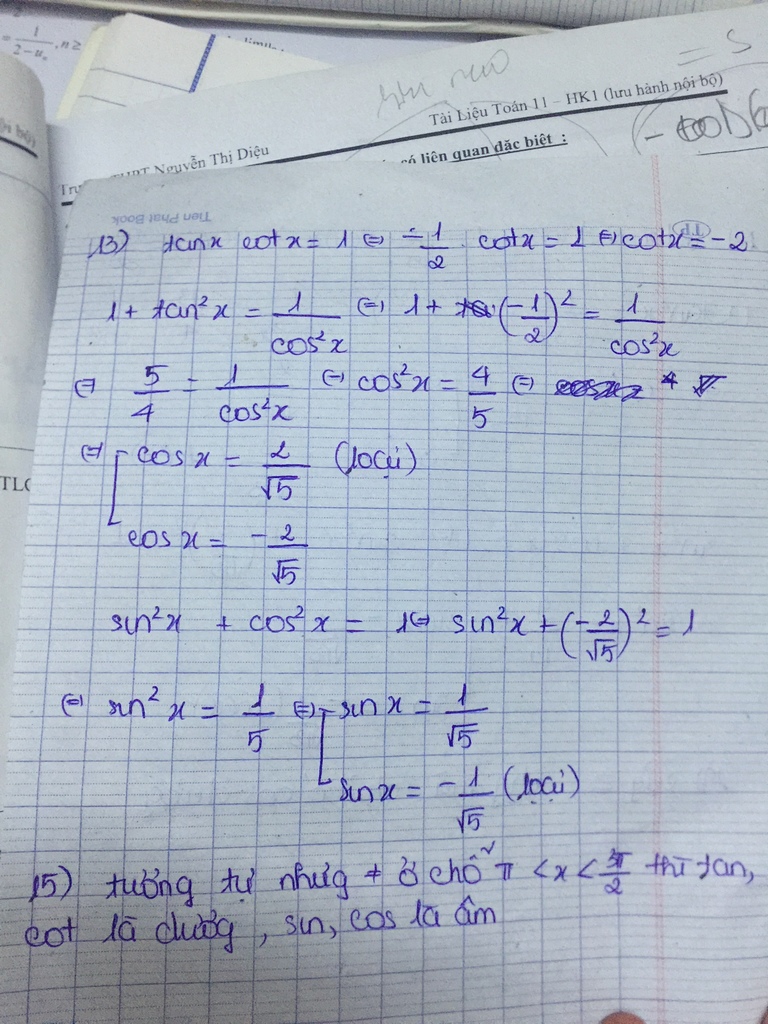 = 1/(2-uₙ), n ≥
= S
Tài Liệu Toán 11 – HK1 (lưu hành nội bộ)
THPT Nguyễn Thị Diệu
có liên quan đặc biệt :
Tien Phat Book
13) tanx cotx = 1 ⇔ -1/2 . cotx = 1 ⇔ cotx = -2
1 + tan²x = 1/cos²x ⇔ 1 + (-1/2)² = 1/cos²x
⇔ 5/4 = 1/cos²x ⇔ cos²x = 4/5 ⇔
⇔ [ cos x = 2/√5 (loại)
cos x = -2/√5
sin²x + cos²x = 1 ⇔ sin²x + (-2/√5)² = 1
⇔ sin²x = 1/5 ⇔ [ sin x = 1/√5
sin x = -1/√5 (loại)
TLC
15) tương tự nhưg ≠ ở chỗ π < x < 3π/2 thì tan,
cot là dương, sin, cos là âm